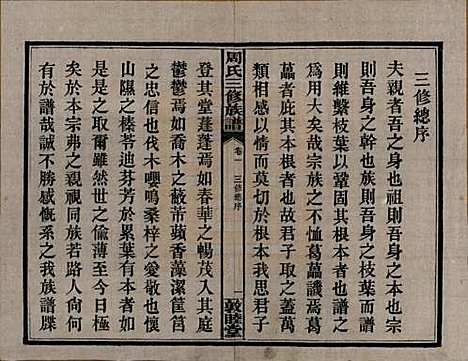 三修總序
夫親者吾之本也祖則吾身之根
本吾身之幹也族則吾身之枝葉而譜
則維繫枝葉以鞏固其根本者也譜之
為用大矣哉宗族之不恤葛藟譏焉葛
藟者庇其本根者也故君子取之蓋萬
類相感以情而天不忘其根本我思君子
周氏三修族譜
卷一
三修總序
一
敦睦堂
登其堂蓬蓬焉如春華之暢茂入其庭
鬱鬱焉如甘棠之蔽芾蘋香藻潔筐筥
之忠信可感也伐木嚶鳴桑梓之愛敬也懷
山隰之榛苓迪芬芳於累葉者由
是是之取爾雖然世之人至於今日極
矣於本宗弗之親視同族若路人而
於譜哉誠不勝感慨系之我族譜牒